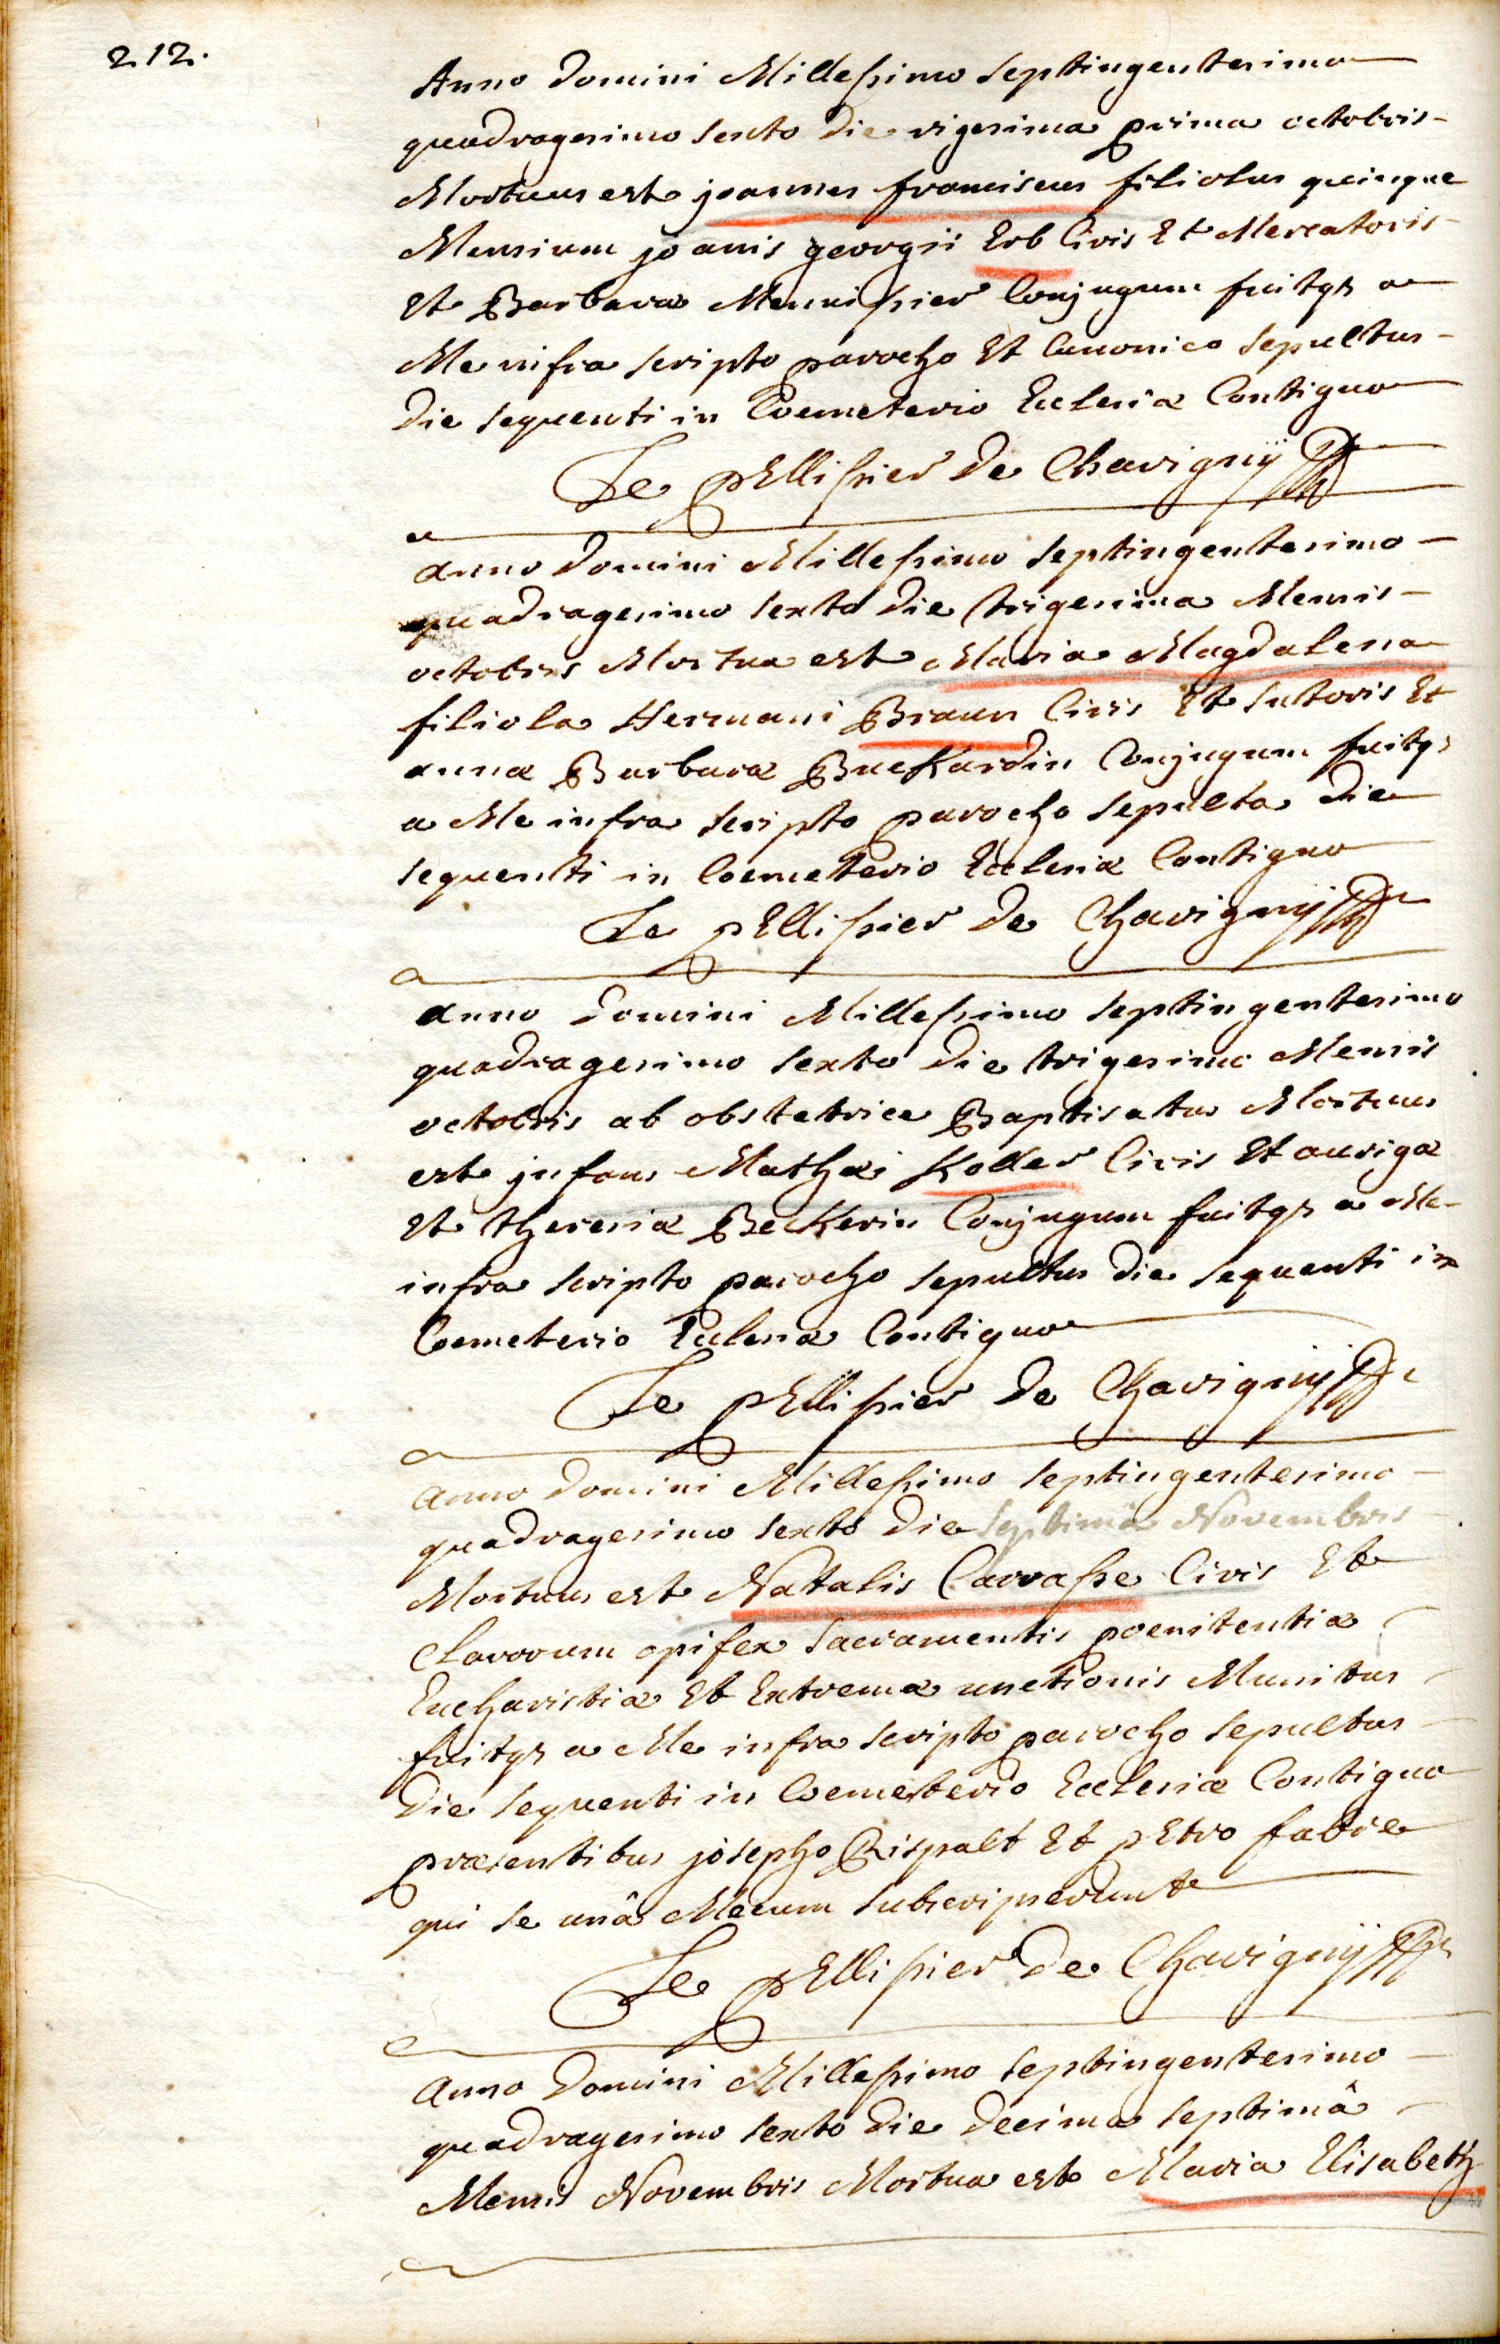 212.
Anno Domini Millessimo septingentesimo
quadragesimo sexto die vigesima prima octobris
Mortuus est joannes franciscus filiolus quinque
Mensium joanis georgii Erb Civis Et Mercatoris
Et Barbara Mennissier Conjugum fuitqs a
Me infra scripto parocho Et Canonico sepultus
Die sequenti in Coemeterio Ecclesiæ Contiguo
Le pEllissier De Chavignÿ
anno Domini Millessimo septingentesimo
quadragesimo sexto die trigesima Mensis
octobris Mortua est Maria Magdalena
filiola Hermani Braun Civis Et sutoris Et
annæ Barbaræ Buckardin Conjugum fuitqs
a Me infra scripto parocho sepulta die
sequenti in Coemeterio Ecclesiæ Contiguo
Le pEllissier De Chavignÿ
anno Domini Millessimo septingentesimo
quadragesimo sexto die trigesima Mensis
octobris ab obstetrice Baptisatus Mortuus
est jnfans Mathæi Koller Civis Et aurigæ
Et theresiæ Beckerin Conjugum fuitqs a Me
infra scripto parocho sepultus die sequenti in
Coemeterio Ecclesiæ Contiguo
Le pEllissier De Chavignÿ
anno Domini Millessimo septingentesimo
quadragesimo sexto die septimâ Novembris
Mortuus est Natalis Carrasse Civis Et
Clavorum opifex sacramentis poenitentiæ
Eucharistiæ Et Extremæ unctionis Munitus
fuitqs a Me infra scripto parocho sepultus
Die sequenti in Coemeterio Ecclesiæ Contiguo
præsentibus josepho Rispalt Et pEtro fabre
qui se unâ Mecum subscripserunt
Le pEllissier De Chavignÿ
Anno Domini Millessimo septingentesimo
quadragesimo sexto die decima septimâ
Mensis Novembris Mortua est Maria Elisabeth